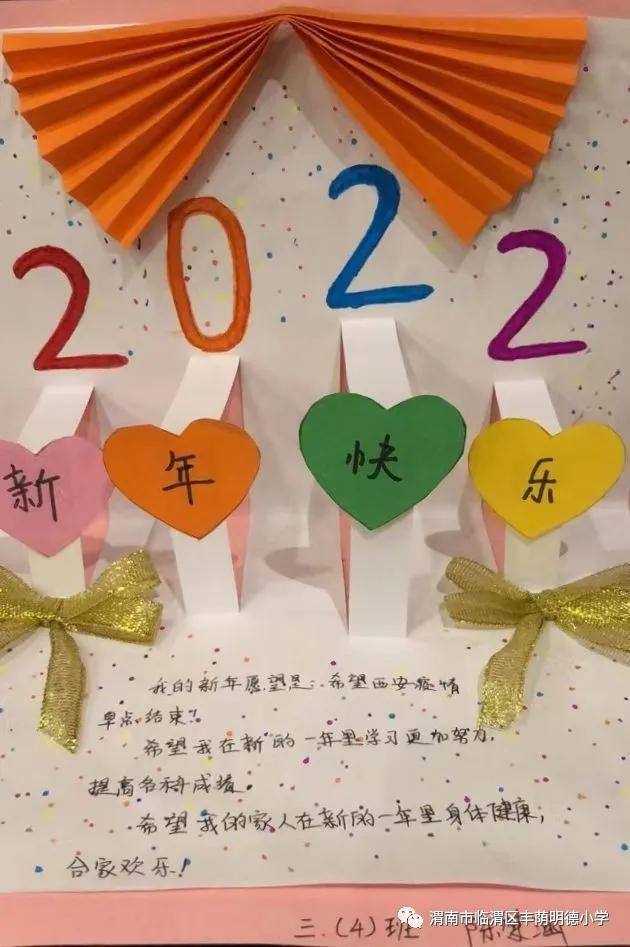 2022
新年快乐
我的新年愿望是:希望西安疫情
早点结束!
希望我在新的一年里学习更加努力,
提高各科成绩。
希望我的家人在新的一年里身体健康,
合家欢乐!
三.(4)班
渭南市临渭区丰荫明德小学